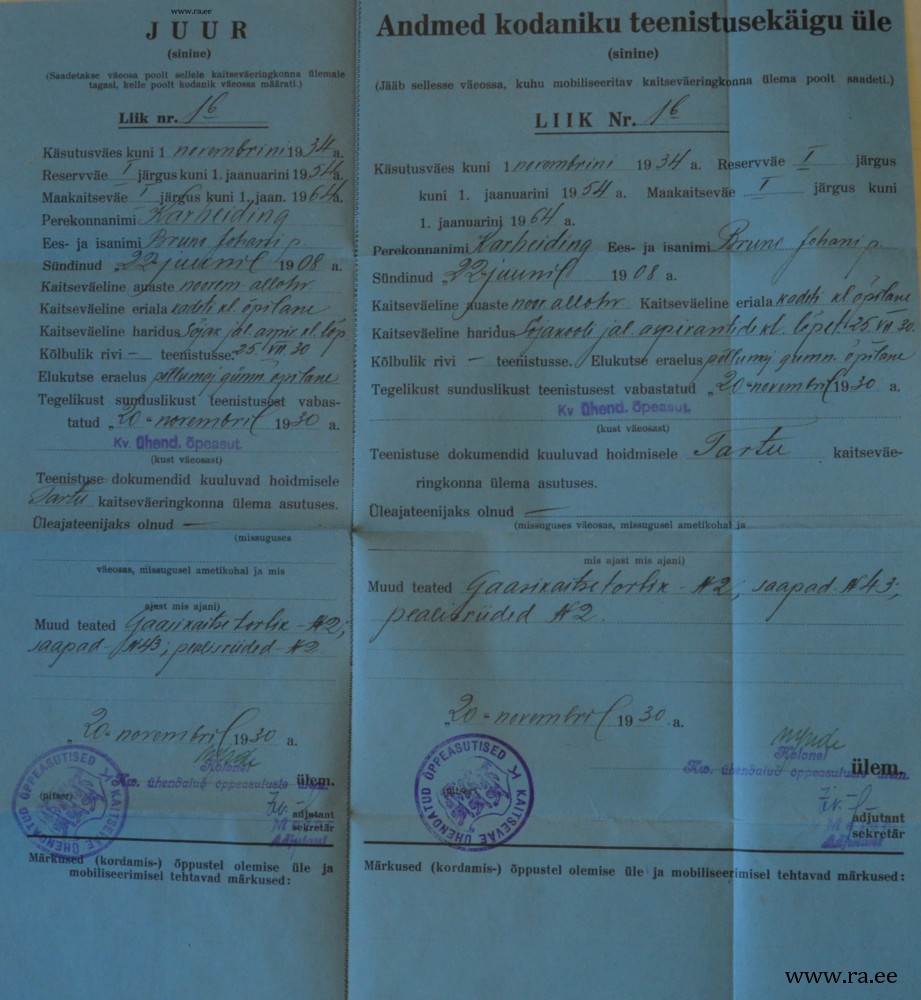 www.ra.ee
JUUR
(sinine)
(Saadetakse väeosa poolt sellele kaitseväeringkonna ülemale
tagasi, kelle poolt kodanik väeossa määrati.)
Liik nr. 1b
Käsutusväes kuni 1 novembrini 1934 a.
Reservväe I järgus kuni 1. jaanuarini 1954 a.
Maakaitseväe I järgus kuni 1. jaan. 1964 a.
Perekonnanimi Karheiding
Ees- ja isanimi Bruno Johani p.
Sündinud „22" juunil 1908 a.
Kaitseväeline auaste noorem allohv
Kaitseväeline eriala kadeti kl. õpilane
Kaitseväeline haridus Sõjak. jal. aspir. kl. lõp
25. VII. 30
Kõlbulik rivi — teenistusse.
Elukutse eraelus põllumaj. gümn. õpilane
Tegelikust sunduslikust teenistusest vabas-
tatud „20" novembril 1930 a.
Kv. Ühend. õpeasut.
(kust väeosast)
Teenistuse dokumendid kuuluvad hoidmisele
Tartu kaitseväeringkonna ülema asutuses.
Üleajateenijaks olnud —
(missuguses
väeosas, missugusel ametikohal ja mis
ajast mis ajani)
Muud teated Gaasikaitse torbik - №2;
saapad - №43; pealisriided №2
„20" novembril 1930 a.
Kolonel
Kaitseväe ühendatud õppeasutuste ülem.
(pitser)
adjutant
sekretär
Adjutant
KAITSEVÄE ÜHENDATUD ÕPPEASUTISED
Märkused (kordamis-) õppustel olemise üle ja
mobiliseerimisel tehtavad märkused:
Andmed kodaniku teenistusekäigu üle
(sinine)
(Jääb sellesse väeossa, kuhu mobiliseeritav kaitseväeringkonna ülema poolt saadeti.)
LIIK Nr. 1b
Käsutusväes kuni 1 novembrini 1934 a. Reservväe I järgus
kuni 1. jaanuarini 1954 a. Maakaitseväe I järgus kuni
1. jaanuarini 1964 a.
Perekonnanimi Karheiding Ees- ja isanimi Bruno Johani p.
Sündinud „22" juunil 1908 a.
Kaitseväeline auaste noor. allohv Kaitseväeline eriala kadeti kl. õpilane
Kaitseväeline haridus Sõjakooli jal. aspirantide kl. lõpet. 25. VII. 30
Kõlbulik rivi — teenistusse. Elukutse eraelus põllumaj. gümn. õpilane
Tegelikust sunduslikust teenistusest vabastatud „20" novembril 1930 a.
Kv. Ühend. õpeasut.
(kust väeosast)
Teenistuse dokumendid kuuluvad hoidmisele Tartu kaitseväe-
ringkonna ülema asutuses.
Üleajateenijaks olnud —
(missuguses väeosas, missugusel ametikohal ja
mis ajast mis ajani)
Muud teated Gaasikaitse torbik - №2; saapad №43;
pealisriided №2.
„20" novembril 1930 a.
Kolonel
Kaitseväe ühendatud õppeasutuste ülem.
(pitser)
adjutant
sekretär
Adjutant
KAITSEVÄE ÜHENDATUD ÕPPEASUTISED
Märkused (kordamis-) õppustel olemise üle ja mobiliseerimisel tehtavad märkused:
www.ra.ee